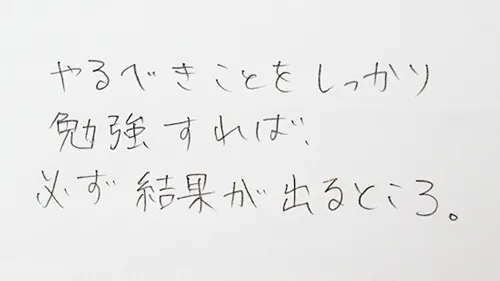 やるべきことをしっかり
勉強すれば、
必ず結果が出るところ。